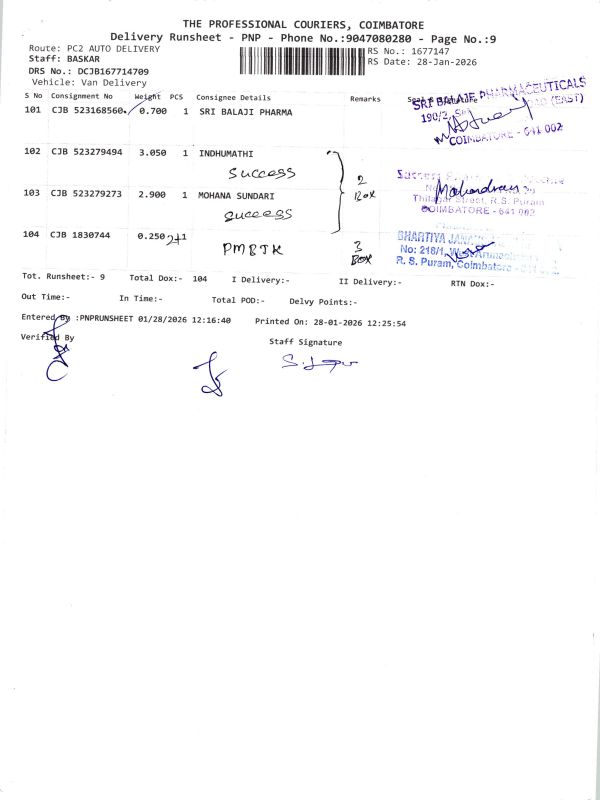 THE PROFESSIONAL COURIERS, COIMBATORE
Delivery Runsheet - PNP - Phone No.:9047080280 - Page No.:9
Route: PC2 AUTO DELIVERY
RS No.: 1677147
Staff: BASKAR
RS Date: 28-Jan-2026
DRS No.: DCJB167714709
Vehicle: Van Delivery
S No Consignment No Weight PCS Consignee Details Remarks
101 CJB 523168560 0.700 1 SRI BALAJI PHARMA
SRI BALAJE PHARMACEUTICALS
190/2,
(EAST)
COIMBATORE - 641 002
102 CJB 523279494 3.050 1 INDHUMATHI
Success
2
Box
Success
103 CJB 523279273 2.900 1 MOHANA SUNDARI
success
Mahendran
Street, R.S. Puram
COIMBATORE - 641 002
104 CJB 1830744 0.250 2+1
PMBJK
3
Box
BHARTIYA
No: 218/1,
R. S. Puram, Coimbatore
Tot. Runsheet:- 9 Total Dox:- 104 I Delivery:- II Delivery:- RTN Dox:-
Out Time:- In Time:- Total POD:- Delvy Points:-
Entered By :PNPRUNSHEET 01/28/2026 12:16:40 Printed On: 28-01-2026 12:25:54
Verified By
Staff Signature